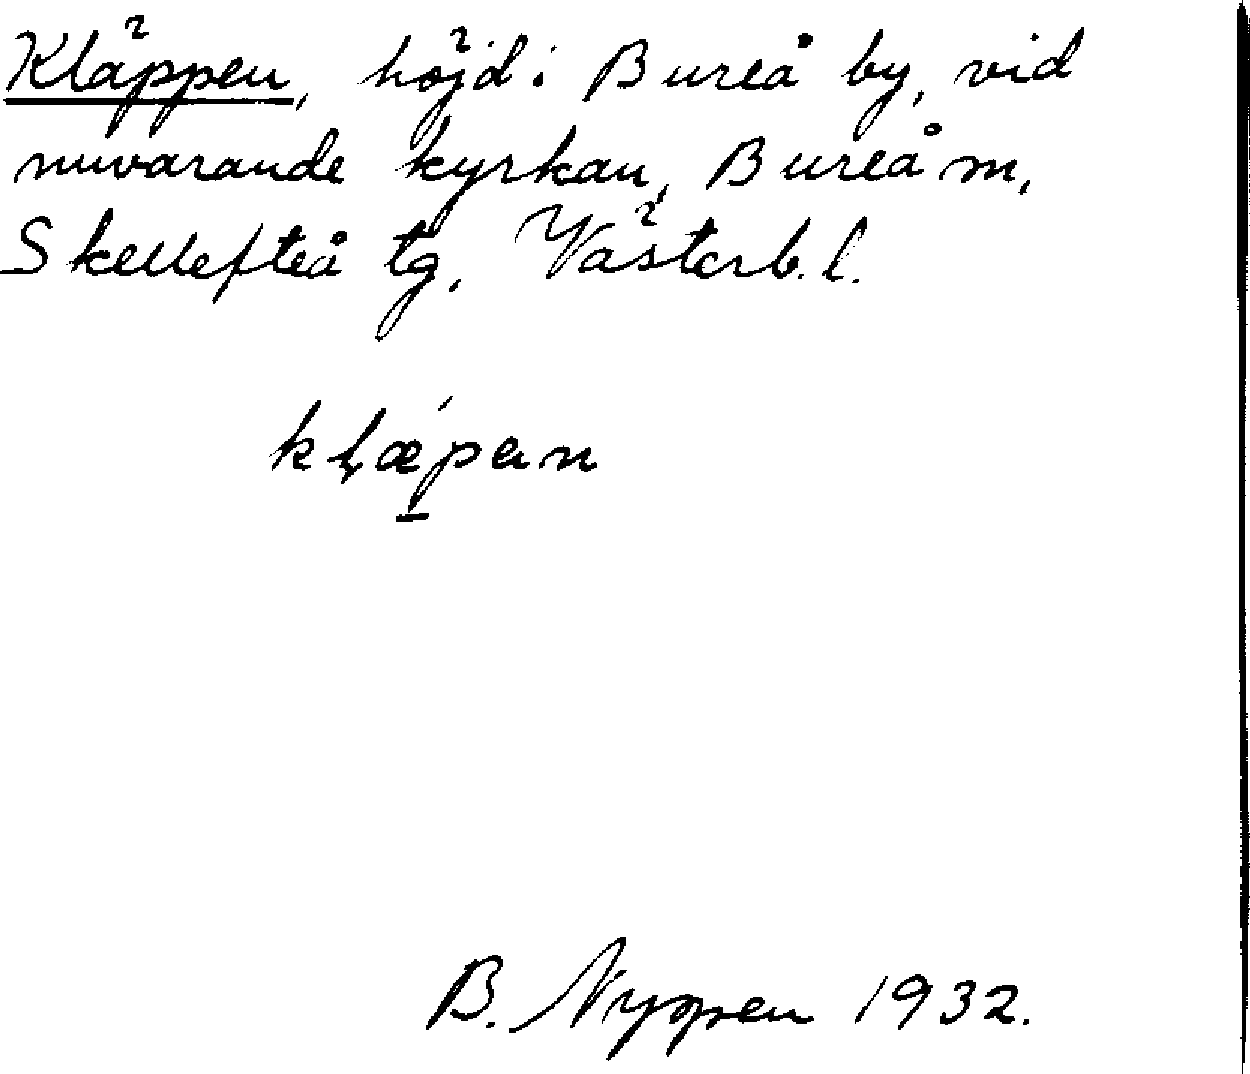 Kläppen, höjd i Bureå by, vid
nuvarande kyrkan, Bureå m,
Skellefteå tg, Västerb. l.
kḷæ´p̲an
B. Nyppen 1932.